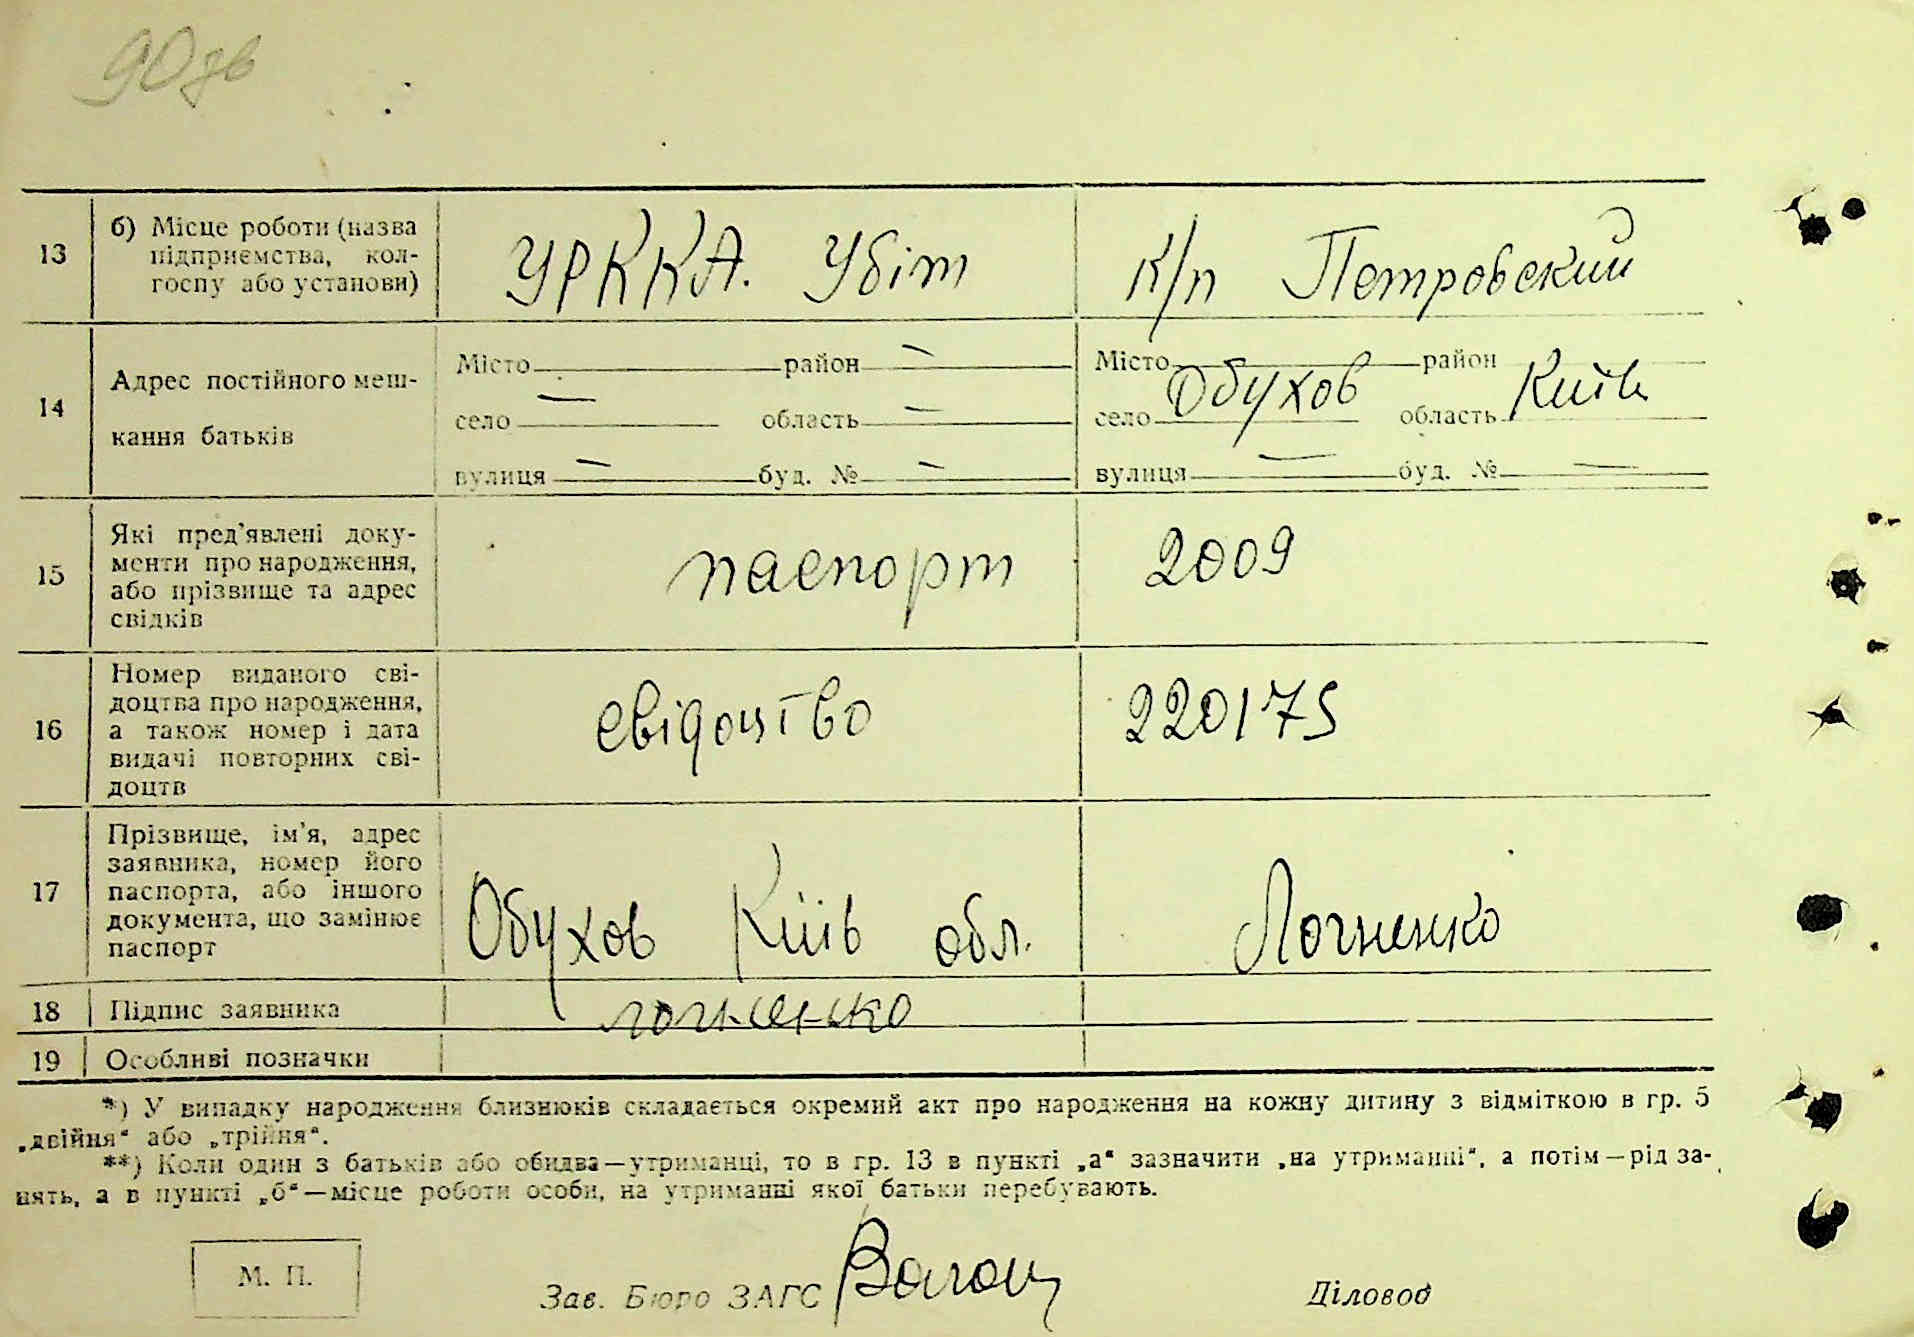 90 дв
13 б) Місце роботи (назва УРККА. Убіт к/п Петровский
підприємства, кол-
госпу або установи)
14 Адрес постійного меш-
кання батьків
Місто — район — Місто район
село — область — село Обухов область Київ
вулиця — буд. № — вулиця — буд. № —
15 Які пред'явлені доку- паспорт 2009
менти про народження,
або прізвище та адрес
свідків
16 Номер виданого сві- свідоцтво 220175
доцтва про народження,
а також номер і дата
видачі повторних сві-
доцтв
17 Прізвище, ім'я, адрес
заявника, номер його
паспорта, або іншого
документа, що замінює
паспорт
Обухов Київ обл. Логненко
18 Підпис заявника логненко
19 Особливі позначки
*) У випадку народження близнюків складається окремий акт про народження на кожну дитину з відміткою в гр. 5
„двійня“ або „трійня“.
**) Коли один з батьків або обидва—утриманці, то в гр. 13 в пункті „а“ зазначити „на утриманні“, а потім—рід за-
нять, а в пункті „б“—місце роботи особи, на утриманні якої батьки перебувають.
М. П.
Зав. Бюро ЗАГС Діловод